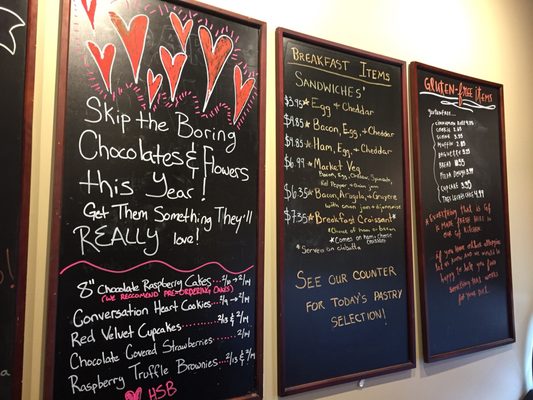 Skip the Boring
Chocolates & Flowers
this Year!
Get Them Something They'll
REALLY love!
8" Chocolate Raspberry Cakes 2/10 → 2/14
(We reccomend pre-ordering cakes)
Conversation Heart Cookies 2/9 → 2/14
Red Velvet Cupcakes 2/13 & 2/14
Chocolate Covered Strawberries 2/14
Raspberry Truffle Brownies 2/13 & 2/14
HSB
Breakfast Items
Sandwiches*
$3.95 * Egg + Cheddar
$4.85 * Bacon, Egg + Cheddar
$4.85 * Ham, Egg + Cheddar
$6.99 * Market Veg
Bacon, Egg, Cheddar, Spinach,
Red Pepper + onion jam
$6.35 * Bacon, Arugula + Gruyere
with onion jam + dijonnaise
$7.35 * Breakfast Croissant *
*Choice of ham or bacon
*Comes on ham & cheese
croissant
*Served on ciabatta
See our counter
for today's pastry
selection!
Gluten-free Items
gluten free
cinnamon roll
cookie
scone
muffin
baguette
bread
pizza dough
cupcake
cake
*Everything that is GF
is made fresh in
our GF kitchen
if you have other allergies
let us know and we would be
happy to help you find
something that works
for your diet.